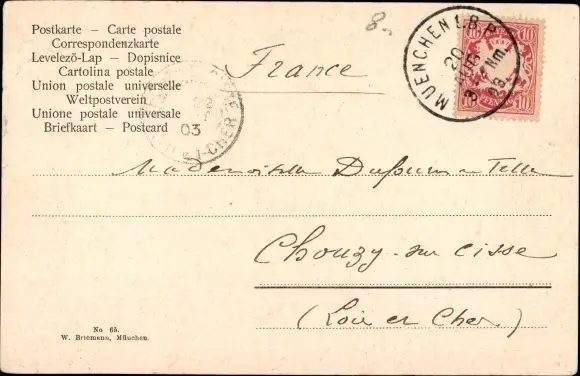 Postkarte – Carte postale
Correspondenzkarte
Levelező-Lap – Dopisnice
Cartolina postale
Union postale universelle
Weltpostverein
Unione postale universale
Briefkaart – Postcard
8.
France
MUENCHEN 1. B.P.
20
3-4 Nm.
03
10 10
10 10
03
CHER
Mademoiselle
Chouzy-sur Cisse
(Loir et Cher.)
No 65.
W. Briemann, München.